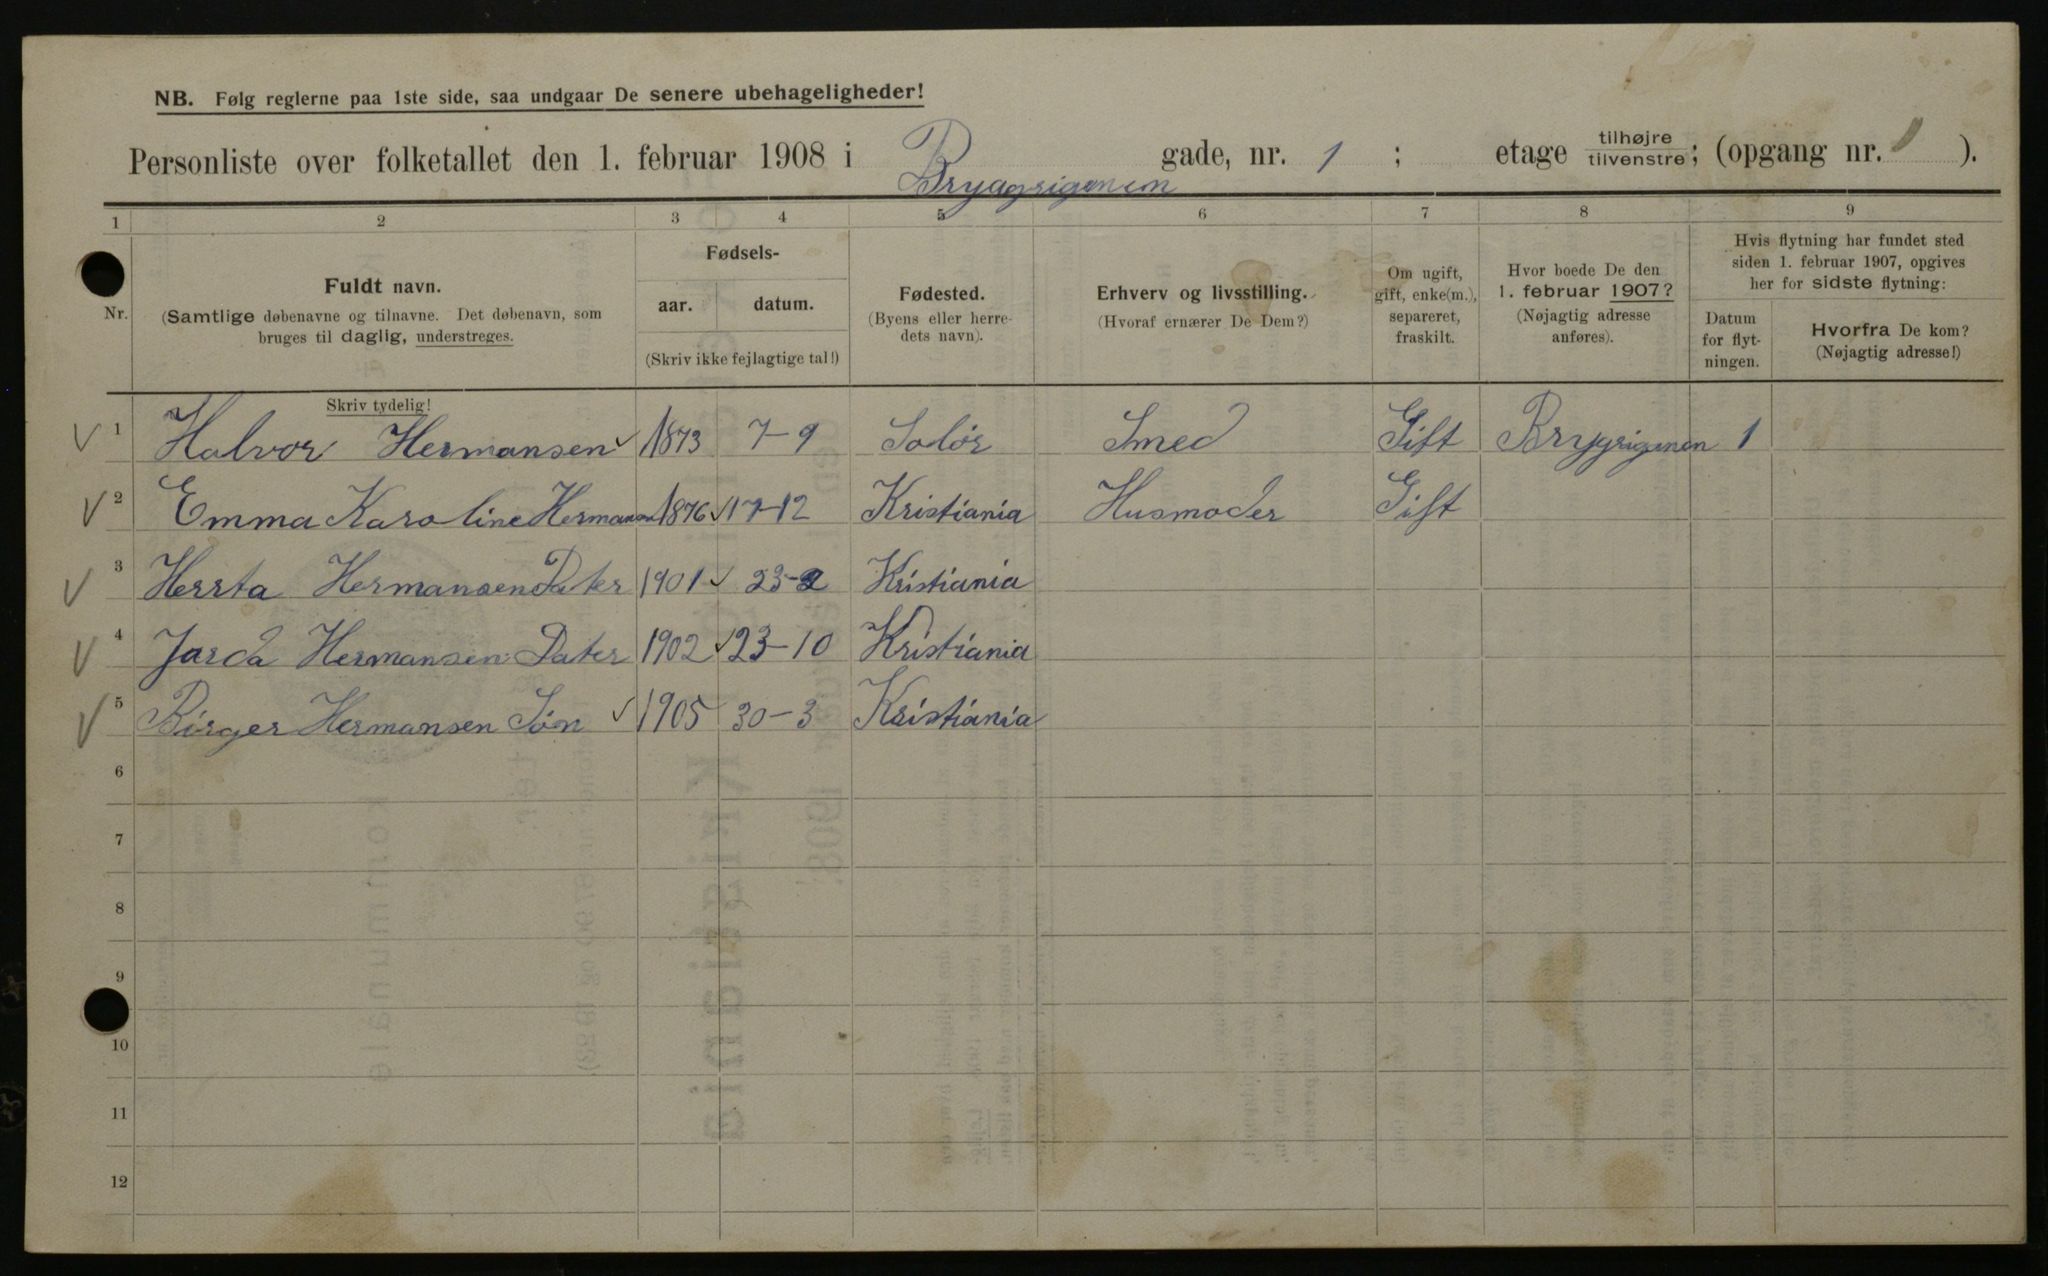 NB. Følg reglerne paa 1ste side, saa undgaar De senere ubehageligheder!
Personliste over folketallet den 1. februar 1908 i Bryggrigenen gade, nr. 1 ; etage tilhøjre tilvenstre; (opgang nr. 1 ).
1 2 3 4 5 6 7 8 9
Nr.
Fuldt navn.
(Samtlige døbenavne og tilnavne. Det døbenavn, som
bruges til daglig, understreges.
Skriv tydelig!
Fødsels-
aar. datum.
(Skriv ikke fejlagtige tal!)
Fødested.
(Byens eller herre-
dets navn).
Erhverv og livsstilling.
(Hvoraf ernærer De Dem?)
Om ugift,
gift, enke(m.),
separeret,
fraskilt.
Hvor boede De den
1. februar 1907?
(Nøjagtig adresse
anføres).
Hvis flytning har fundet sted
siden 1. februar 1907, opgives
her for sidste flytning:
Datum
for flyt-
ningen.
Hvorfra De kom?
(Nøjagtig adresse!)
1 Halvor Hermansen 1873 7-9 Solør Smed Gift Brygrigenen 1
2 Emma Karoline Hermansen 1876 17-12 Kristiania Husmoder Gift
3 Herrta Hermansen Dater 1901 23-2 Kristiania
4 Jarda Hermansen Dater 1902 23-10 Kristiania
5 Birger Hermansen Søn 1905 30-3 Kristiania
6
7
8
9
10
11
12